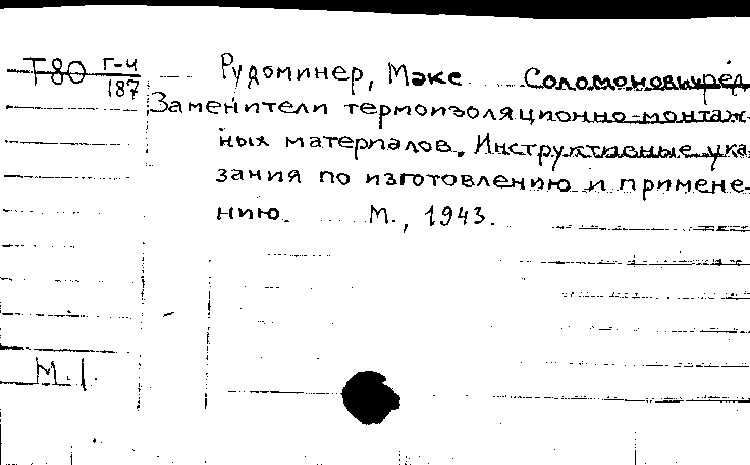 Т80 Г-и
187
Рудоминер, Макс Соломонович, ред.
Заменители термоизоляционно-монтаж-
ных материалов. Инструктивные ука-
зания по изготовлению и примене-
нию. М., 1943.
М.1.